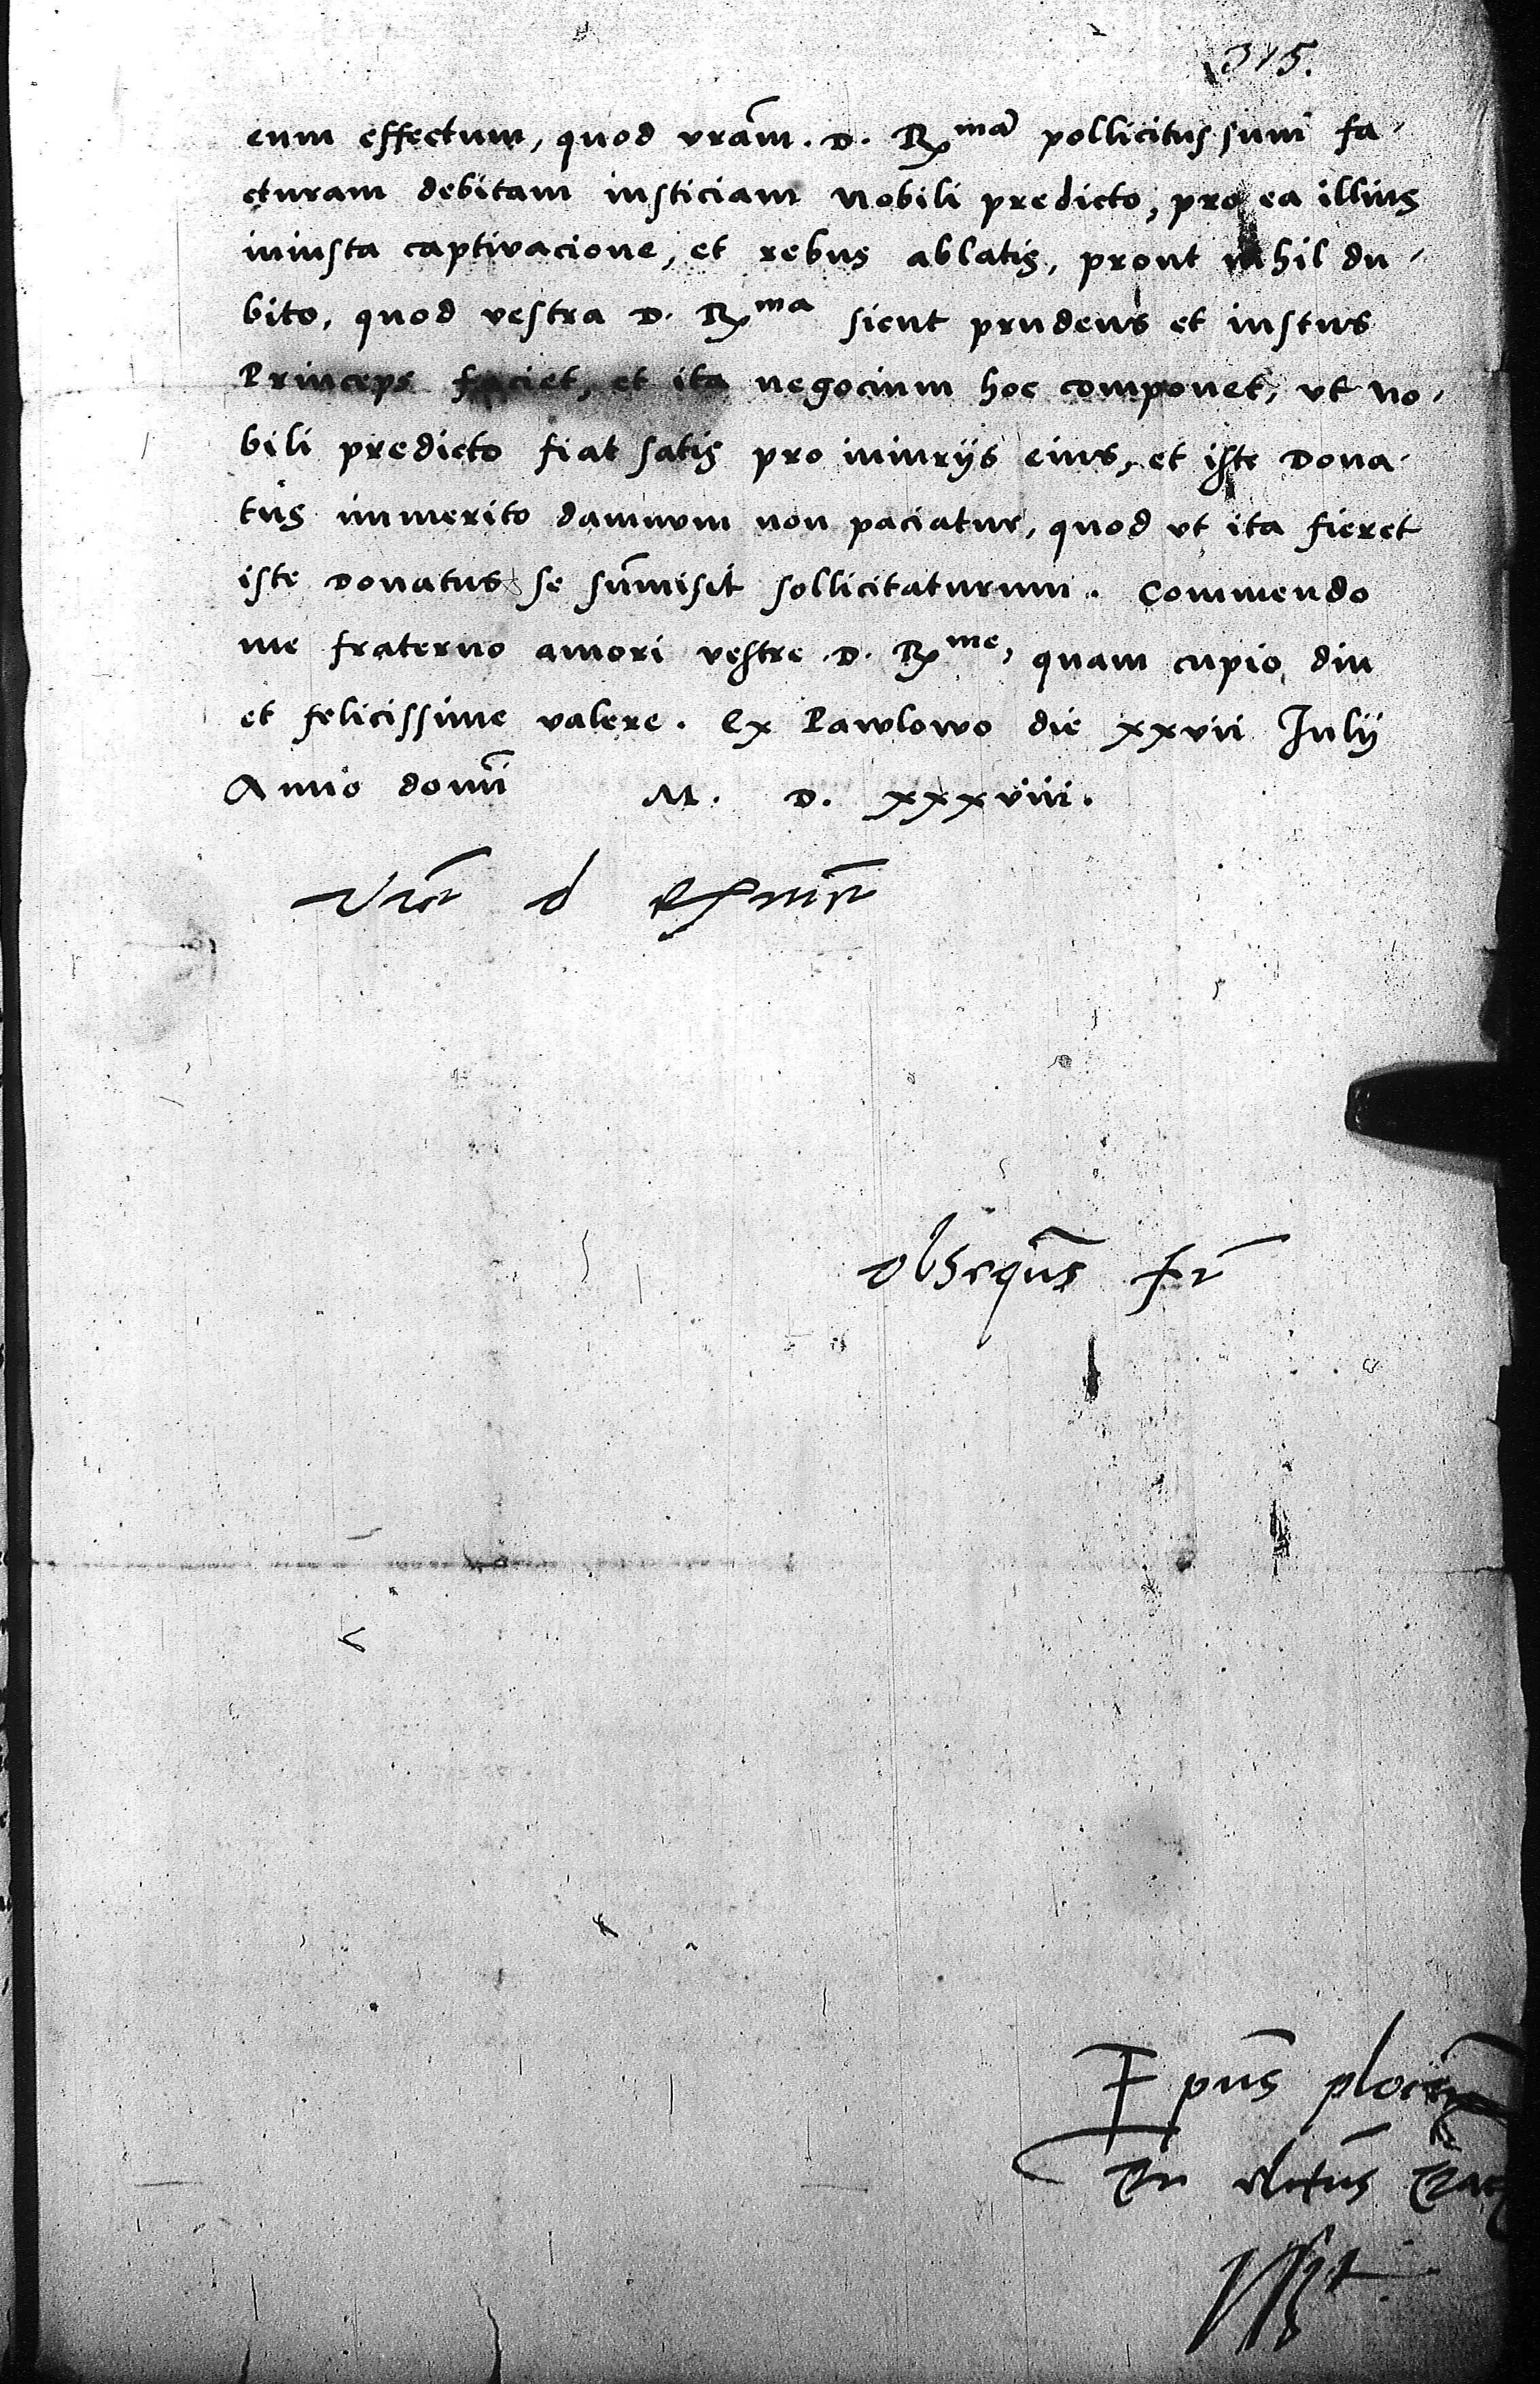 315.
eum effectum, quod vram̃. D. Rma͂ pollicitus sum fa-
cturam debitam iusticiam nobili predicto, pro ea illius
iniusta captivacione, et rebus ablatis, prout nihil du-
bito, quod vestra D. Rma sicut prudens et iustus
Princeps faciet, et ita negocium hoc componet, vt no-
bili predicto fiat satis pro iniurijs eius, et iste Dona-
tus immerito damnum non paciatur, quod vt ita fieret
iste Donatus se sum̃isit sollicitaturum. Commendo
me fraterno amori vestre D. Rme, quam cupio diu
et felicissime valere. Ex Pawlowo die xxvii Julij
Anno domi͂ M. D. xxxviii.
Vre͂ d R
obsequ͂s fr͂
Epu͂s ploce͂n
electu͂s